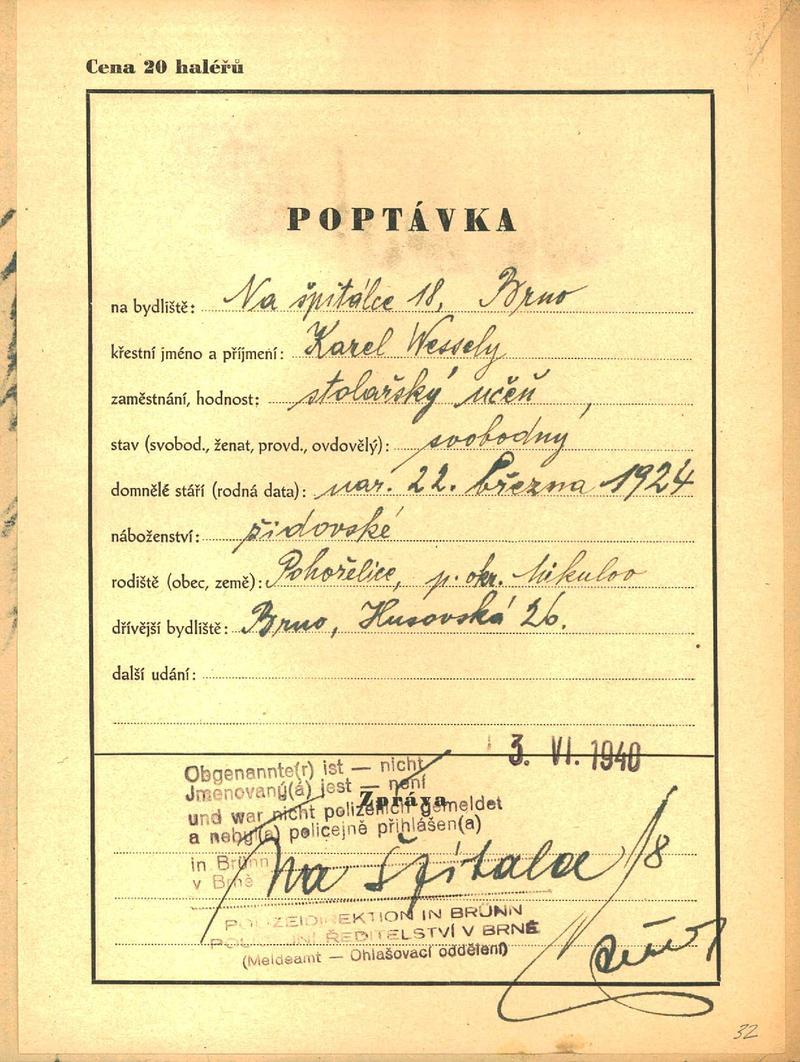 Cena 20 haléřů
POPTÁVKA
na bydliště: Na špitálce 18, Brno
křestní jméno a příjmení: Karel Wessely
zaměstnání, hodnost: stolařský učeň,
stav (svobod., ženat, provd., ovdovělý): svobodný
domnělé stáří (rodná data): nar. 22. března 1924
náboženství: židovské
rodiště (obec, země): Pohořelice, p. okr. Mikulov
dřívější bydliště: Brno, Husovská 26.
další udání:
3. VI. 1940
Obgenannte(r) ist — nicht
Jmenovaný(á) jest — není
Zpráva
und war nicht polizeilich gemeldet
a nebyl(a) policejně přihlášen(a)
in Brünn
v Brně
Na Špitalce 18
POLIZEIDIREKTION IN BRÜNN
POLICEJNÍ ŘEDITELSTVÍ V BRNĚ
(Meldeamt — Ohlašovací oddělení)
32